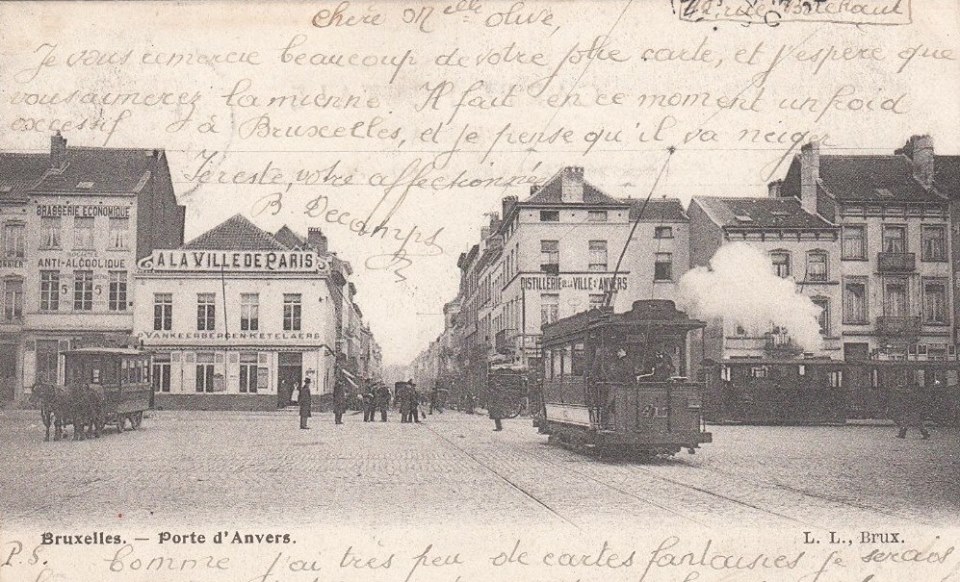 Chère Mlle Olive
Je vous remercie beaucoup de votre jolie carte, et j'espère que
vous aimerez la mienne. Il fait en ce moment un froid
excessif à Bruxelles, et je pense qu'il va neiger
Je reste, votre affectionnée
B Decamps
BRASSERIE ECONOMIQUE
ANTI-ALCOOLIQUE
A LA VILLE DE PARIS
VANKEERBERGEN-KETELAERS
DISTILLERIE DE LA VILLE D'ANVERS
Bruxelles. — Porte d'Anvers.
L. L., Brux.
P.S. Comme j'ai très peu de cartes fantaisies je serais